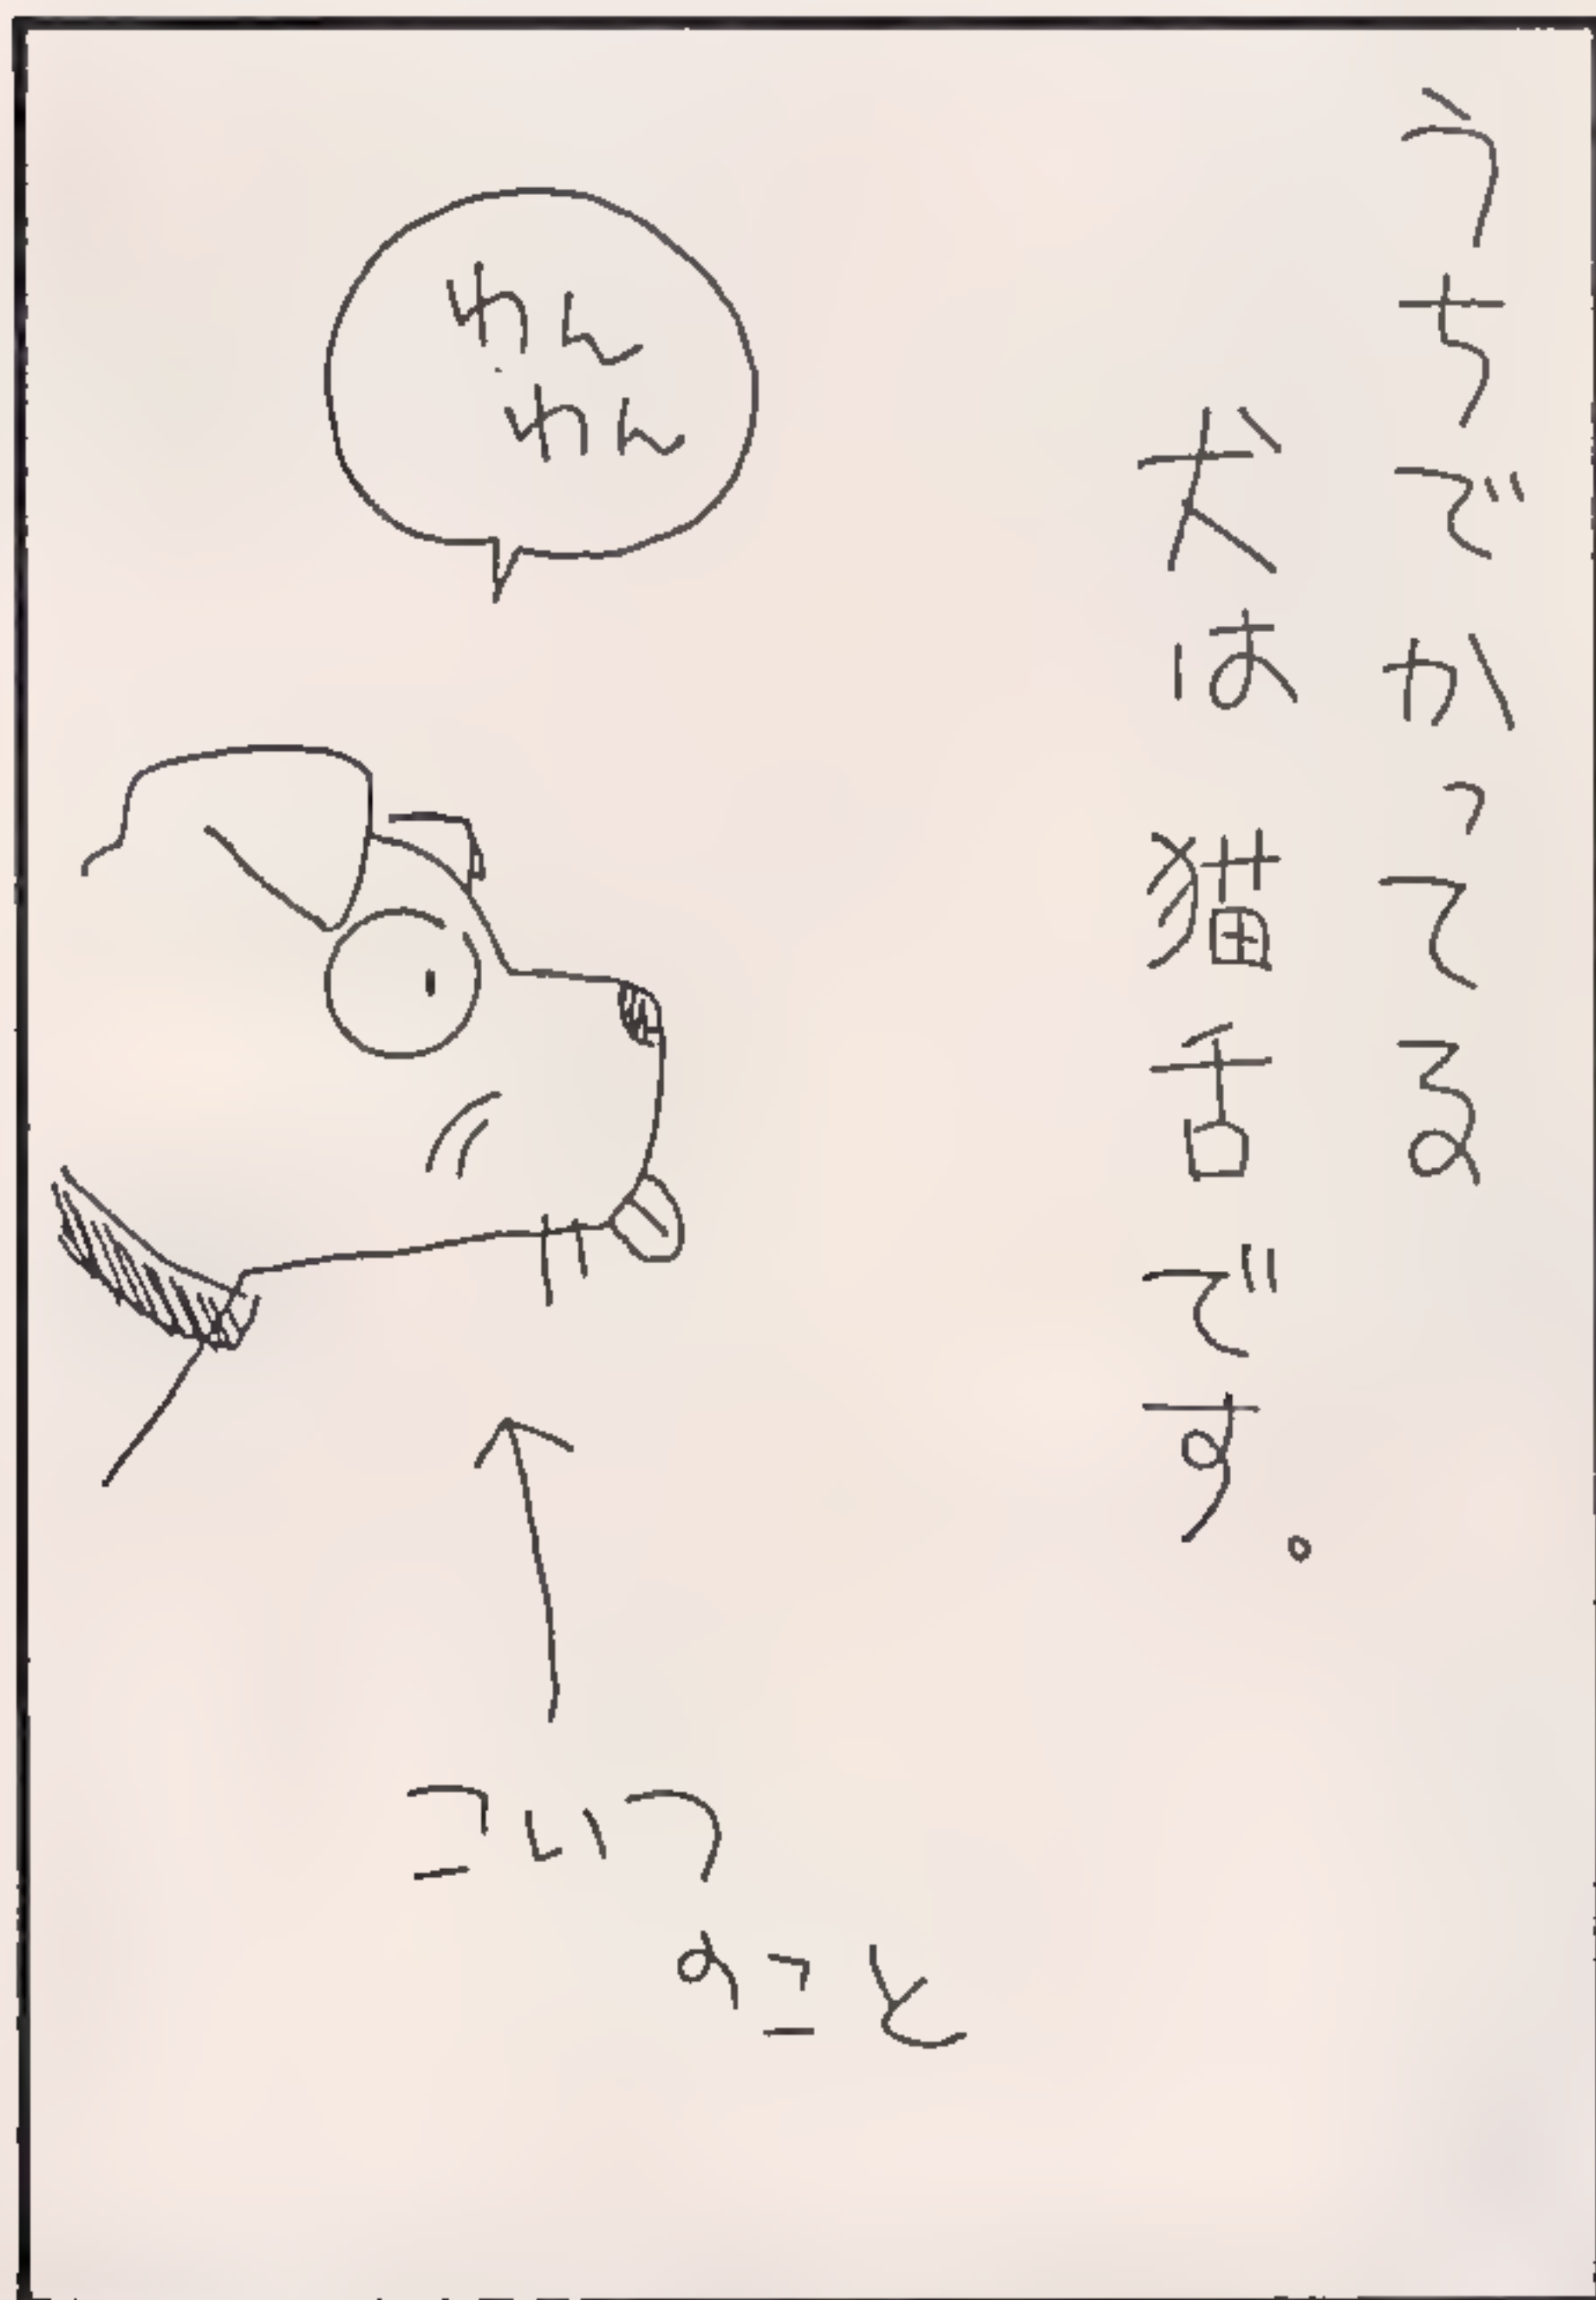 うちでかってる
犬は猫舌です。
わん
わん
こいつ
のこと